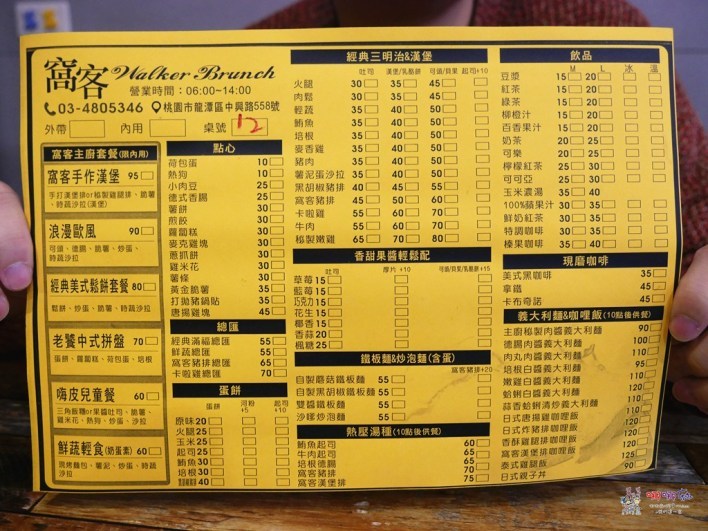 窩客 Walker Brunch
營業時間：06:00~14:00
03-4805346 桃園市龍潭區中興路558號
外帶 內用 桌號 12
窩客主廚套餐(限內用)
窩客手作漢堡 95
手打漢堡排or秘製雞腿排、脆薯、時蔬沙拉(漢堡)
浪漫歐風 90
可頌、德腸、脆薯、炒蛋、時蔬沙拉
經典美式鬆餅套餐 80
鬆餅、炒蛋、脆薯、時蔬沙拉
老饕中式拼盤 70
蛋餅、蘿蔔糕、荷包蛋、培根
嗨皮兒童餐 60
三角飯糰or果醬吐司、脆薯、雞米花、熱狗、炒蛋、沙拉
鮮蔬輕食(奶蛋素) 60
現烤麵包、薯泥、炒蛋、時蔬沙拉
點心
荷包蛋 10
熱狗 10
小肉豆 25
德式香腸 25
薯餅 20
煎餃 30
蘿蔔糕 30
麥克雞塊 30
蔥抓餅 30
雞米花 30
薯條 30
黃金脆薯 35
打拋豬鍋貼 35
唐揚雞塊 45
總匯
經典滿福總匯 55
鮮蔬總匯 55
窩客豬排總匯 65
卡啦雞總匯 70
蛋餅
蛋餅 河粉+5 起司+10
原味 20
火腿 25
玉米 25
起司 25
鮪魚 30
培根 30
40
經典三明治&漢堡
吐司 漢堡/乳酪餅 可頌/貝果 起司+10
火腿 30 35 45
肉鬆 30 35 45
輕蔬 35 40 50
鮪魚 35 40 50
培根 35 40 50
麥香雞 35 40 50
豬肉 35 40 50
薯泥蛋沙拉 35 40 50
黑胡椒豬排 40 45 55
窩客豬排 45 50 60
卡啦雞 55 60 70
牛肉 55 60 70
秘製嫩雞 65 70 80
香甜果醬輕鬆配
吐司 厚片+10 可頌/貝果/乳酪餅+15
草莓 15
藍莓 15
巧克力 15
花生 15
椰香 15
香蒜 20
楓糖 25
鐵板麵&炒泡麵(含蛋)
窩客豬排+20
自製蘑菇鐵板麵 55
自製黑胡椒鐵板麵 55
雙醬鐵板麵 55
沙嗲炒泡麵 55
熱壓湯種(10點後供餐)
鮪魚起司 60
牛肉起司 65
培根德腸 65
窩客豬排 70
窩客漢堡排 75
飲品
M L 冰 溫
豆漿 15 20
紅茶 15 20
綠茶 15 20
柳橙汁 15 20
百香果汁 15 20
奶茶 20 25
可樂 20 25
檸檬紅茶 25 30
可可亞 25 30
玉米濃湯 35 40
100%蘋果汁 30 35
鮮奶紅茶 30 35
特調咖啡 30 35
榛果咖啡 35 40
現磨咖啡
美式黑咖啡 35
拿鐵 45
卡布奇諾 45
義大利麵&咖哩飯(10點後供餐)
主廚秘製肉醬義大利麵 90
德腸肉醬義大利麵 100
肉丸肉醬義大利麵 110
培根白醬義大利麵 95
嫩雞白醬義大利麵 110
蛤蜊白醬義大利麵 120
蒜香蛤蜊清炒義大利麵 110
日式唐揚雞咖哩飯 110
日式炸豬排咖哩飯 120
香酥雞腿排咖哩飯 120
窩客漢堡排咖哩飯 125
泰式雞腿飯 90
日式親子丼